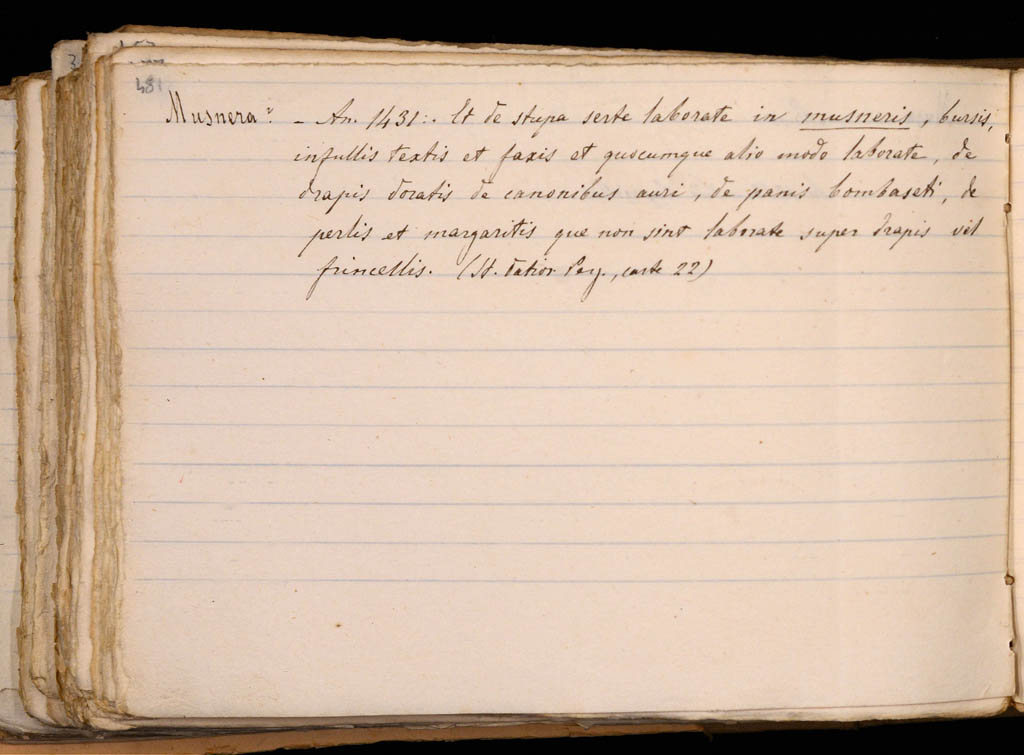 481
Musnera? - An. 1431:. Et de stupa serte laborate in musneris, bursis,
infullis textis et faxis et quocumque alio modo laborate, de
drapis doratis de canonibus auri, de panis bombaseti, de
perlis et margaritis que non sint laborate super drapis vel
frincellis. (St. datior. , carte 22)